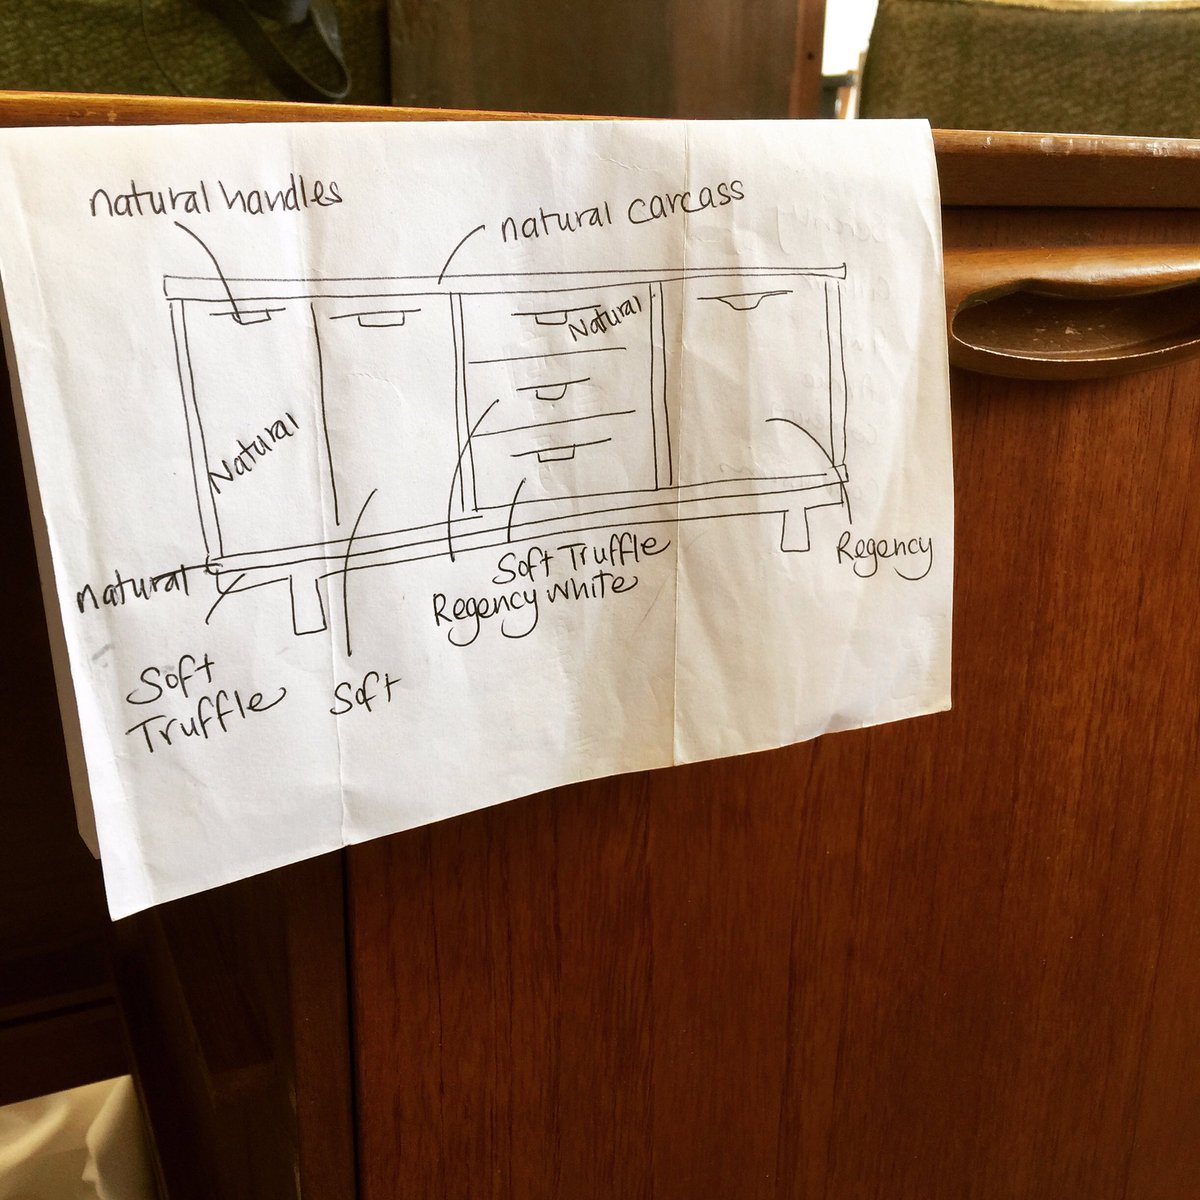 natural handles
natural carcass
Natural
Natural
natural
Soft Truffle
Regency white
Regency
Soft
Truffle
Soft